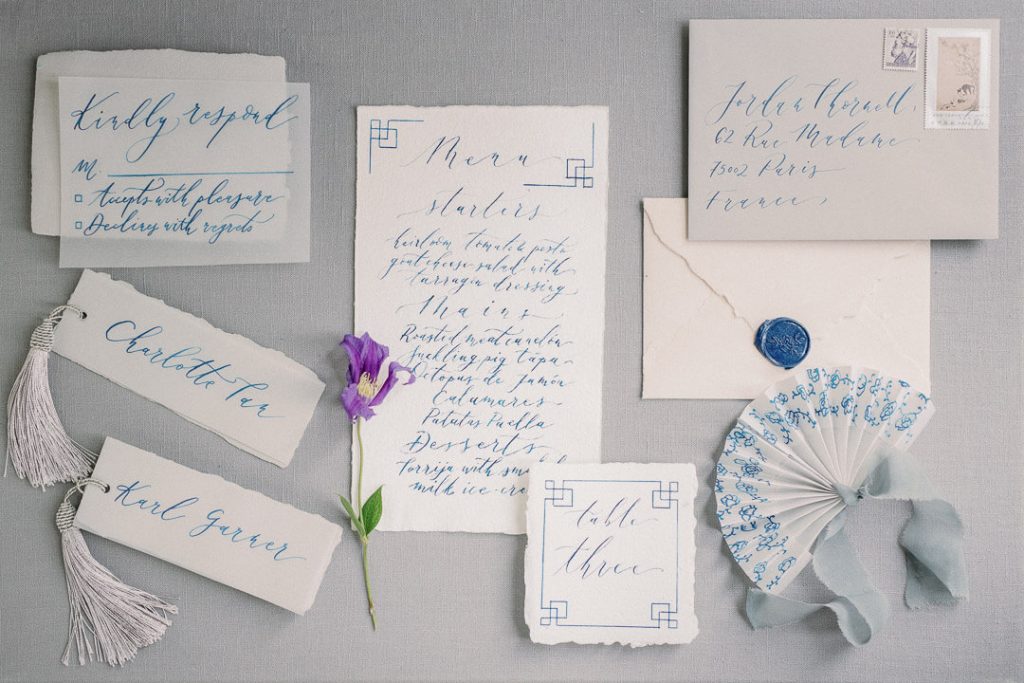 Kindly respond
M.
Accepts with pleasure
Declines with regrets
Charlotte
Karl Garner
Menu
starters
heirloom tomato pesto
goat cheese salad with
tarragon dressing
Mains
Roasted meat
Suckling pig tapa
Octopus de Jamón
Calamares
Patatas Paella
Desserts
Torrija with
milk ice
table
three
Jordan Thornell,
62 Rue Madame
75002 Paris
France,